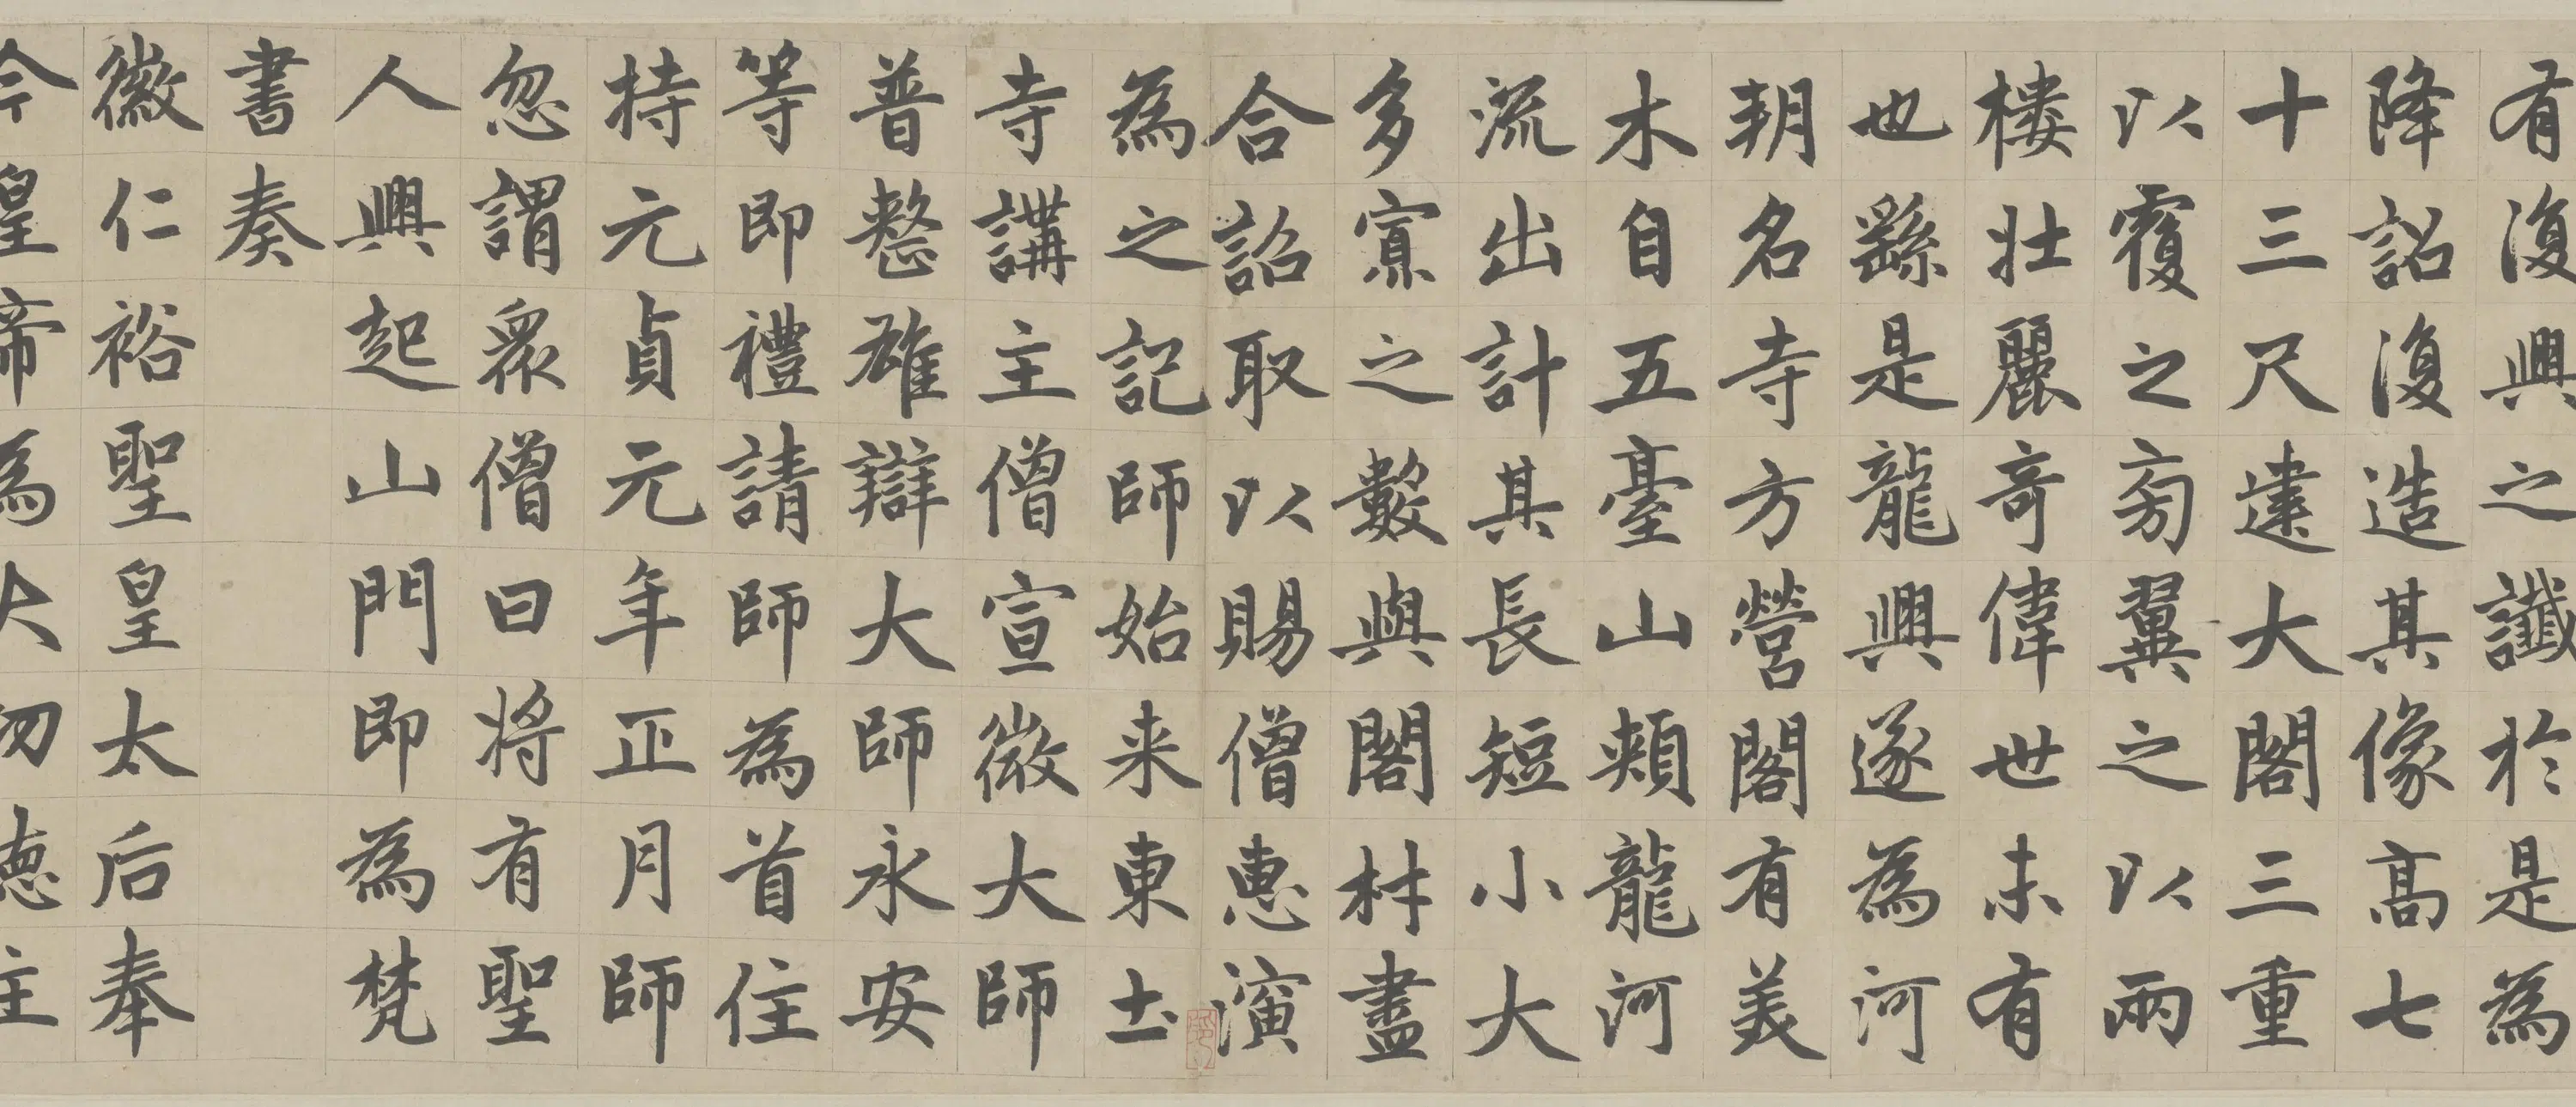 有復興之讖於是為
降詔復造其像高七
十三尺建大閣三重
以覆之旁翼之以兩
樓壯麗奇偉世未有
也繇是龍興遂為河
朔名寺方營閣有美
木自五臺山頰龍河
流出計其長短小大
多寡之數與閣材盡
合詔取以賜僧惠演
為之記師始来東土
寺講主僧宣微大師
普整雄辯大師永安
等即禮請師為首住
持元貞元年正月師
忽謂眾僧曰將有聖
人興起山門即為梵
書奏
徽仁裕聖皇太后奉
今皇帝為大功德主